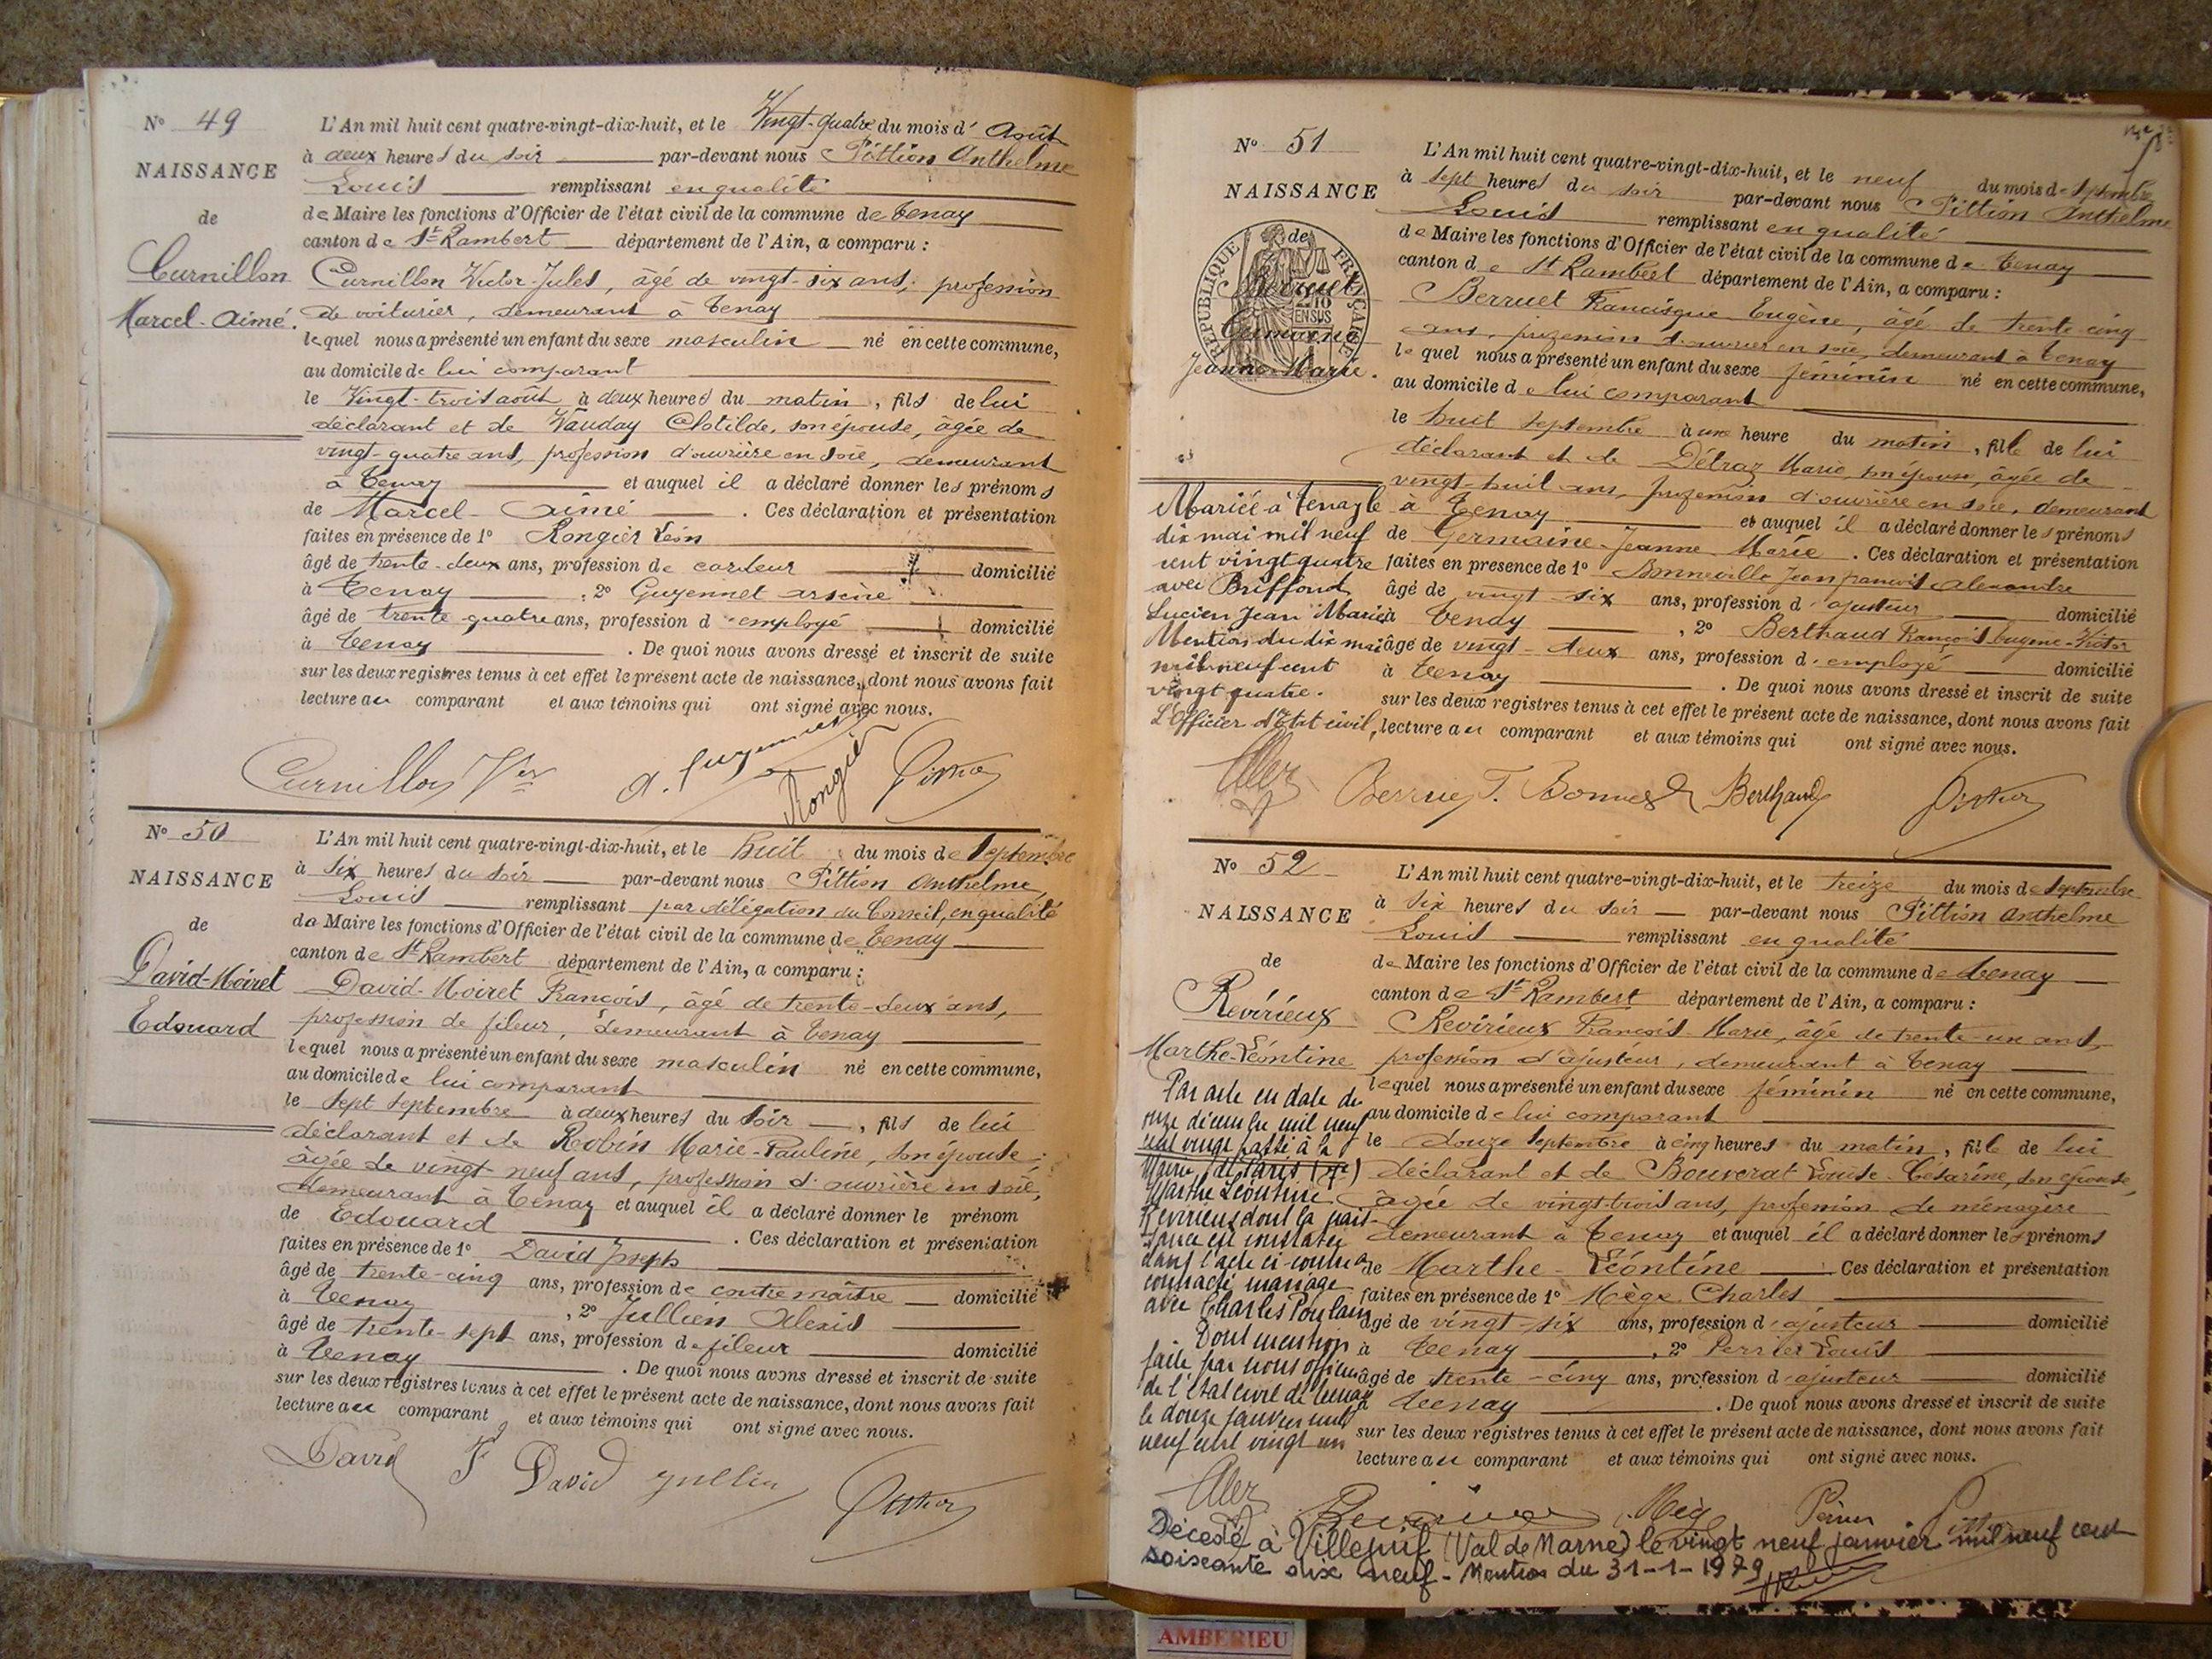 N° 49
NAISSANCE
de
Curnillon
Marcel-Aimé.
L'An mil huit cent quatre-vingt-dix-huit, et le Vingt-quatre du mois d' Août
à deux heures du soir par-devant nous Pittion Anthelme
Louis remplissant en qualité
de Maire les fonctions d'Officier de l'état civil de la commune de Tenay
canton de St Rambert département de l'Ain, a comparu :
Curnillon Victor-Jules, âgé de vingt-six ans, profession
de voiturier, demeurant à Tenay
lequel nous a présenté un enfant du sexe masculin né en cette commune,
au domicile de lui comparant
le Vingt-trois août à deux heures du matin, fils de lui
déclarant et de Vauday Clotilde, son épouse, âgée de
vingt-quatre ans, profession d'ouvrière en soie, demeurant
à Tenay et auquel il a déclaré donner les prénoms
de Marcel-Aimé . Ces déclaration et présentation
faites en présence de 1° Rongier Léon
âgé de trente-deux ans, profession de cardeur domicilié
à Tenay , 2° Guyennet Arsène
âgé de trente quatre ans, profession d'employé domicilié
à Tenay . De quoi nous avons dressé et inscrit de suite
sur les deux registres tenus à cet effet le présent acte de naissance, dont nous avons fait
lecture au comparant et aux témoins qui ont signé avec nous.
Curnillon Vor A. Guyennet Rongier Pittion
N° 50
NAISSANCE
de
David-Moiret
Edouard
L'An mil huit cent quatre-vingt-dix-huit, et le huit du mois de Septembre
à six heures du soir par-devant nous Pittion Anthelme,
Louis remplissant par délégation du Conseil, en qualité
de Maire les fonctions d'Officier de l'état civil de la commune de Tenay
canton de St Rambert département de l'Ain, a comparu :
David-Moiret François, âgé de trente-deux ans,
profession de fileur, demeurant à Tenay
lequel nous a présenté un enfant du sexe masculin né en cette commune,
au domicile de lui comparant
le sept septembre à deux heures du soir, fils de lui
déclarant et de Robin Marie-Pauline, son épouse
âgée de vingt neuf ans, profession d'ouvrière en soie,
demeurant à Tenay et auquel il a déclaré donner le prénom
de Edouard . Ces déclaration et présentation
faites en présence de 1° David Joseph
âgé de trente-cinq ans, profession de contremaître domicilié
à Tenay , 2° Jullien Alexis
âgé de trente-sept ans, profession de fileur domicilié
à Tenay . De quoi nous avons dressé et inscrit de suite
sur les deux registres tenus à cet effet le présent acte de naissance, dont nous avons fait
lecture au comparant et aux témoins qui ont signé avec nous.
David Jh David Jullien Pittion
N° 51
NAISSANCE
de
RÉPUBLIQUE FRANÇAISE
Berruet
Germaine
Jeanne-Marie.
L'An mil huit cent quatre-vingt-dix-huit, et le neuf du mois de Septembre
à sept heures du soir par-devant nous Pittion Anthelme
Louis remplissant en qualité
de Maire les fonctions d'Officier de l'état civil de la commune de Tenay
canton de St Rambert département de l'Ain, a comparu :
Berruet Francisque Eugène, âgé de trente cinq
ans, profession d'ouvrier en soie, demeurant à Tenay
lequel nous a présenté un enfant du sexe féminin né en cette commune,
au domicile de lui comparant
le huit septembre à une heure du matin, fille de lui
déclarant et de Détraz Marie, son épouse, âgée de
vingt-huit ans, profession d'ouvrière en soie, demeurant
à Tenay et auquel il a déclaré donner les prénoms
de Germaine-Jeanne Marie . Ces déclaration et présentation
faites en présence de 1° Bonneville Jean françois Alexandre
âgé de vingt-six ans, profession d'ajusteur domicilié
à Tenay , 2° Berthaud François Eugène-Victor
âgé de vingt-deux ans, profession d'employé domicilié
à Tenay . De quoi nous avons dressé et inscrit de suite
sur les deux registres tenus à cet effet le présent acte de naissance, dont nous avons fait
lecture au comparant et aux témoins qui ont signé avec nous.
Mariée à Tenay le
dix mai mil neuf
cent vingt quatre
avec Briffond
Lucien Jean Marie
Mention du dix mai
mil neuf cent
vingt quatre.
L'Officier d'Etat civil,
Berruet F. Berthaud Pittion
N° 52
NAISSANCE
de
Revirieux
Marthe-Léontine
L'An mil huit cent quatre-vingt-dix-huit, et le treize du mois de Septembre
à six heures du soir par-devant nous Pittion Anthelme
Louis remplissant en qualité
de Maire les fonctions d'Officier de l'état civil de la commune de Tenay
canton de St Rambert département de l'Ain, a comparu :
Revirieux François-Marie, âgé de trente-un ans,
profession d'ajusteur, demeurant à Tenay
lequel nous a présenté un enfant du sexe féminin né en cette commune,
au domicile de lui comparant
le douze Septembre à cinq heures du matin, fille de lui
déclarant et de Bouverat Louise-Césarine, son épouse,
âgée de vingt-trois ans, profession de ménagère
demeurant à Tenay et auquel il a déclaré donner les prénoms
de Marthe-Léontine Ces déclaration et présentation
faites en présence de 1° Mège Charles
âgé de vingt-six ans, profession d'ajusteur domicilié
à Tenay , 2° Perrier Louis
âgé de trente-cinq ans, profession d'ajusteur domicilié
à Tenay . De quoi nous avons dressé et inscrit de suite
sur les deux registres tenus à cet effet le présent acte de naissance, dont nous avons fait
lecture au comparant et aux témoins qui ont signé avec nous.
Par acte en date du
onze décembre mil neuf
cent vingt passé à la
Mairie de Paris
Marthe Léontine
Revirieux dont la nais-
sance est constatée
dans l'acte ci-contre a
contracté mariage
avec Charles Poulain
Dont mention
faite par nous officier
de l'état civil de Tenay
le douze janvier mil
neuf cent vingt un
Revirieux Mège Perrier Pittion
Décédé à Villejuif (Val de Marne) le vingt neuf janvier mil neuf cent
soixante dix neuf - Mention du 31-1-1979
AMBERIEU